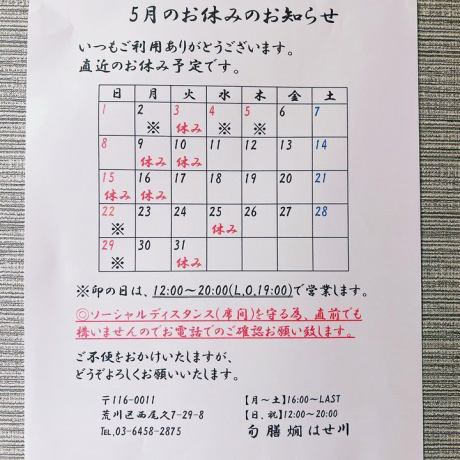 5月のお休みのお知らせ
いつもご利用ありがとうございます。
直近のお休み予定です。
日 月 火 水 木 金 土
1 2 3 4 5 6 7
※ 休み ※ ※
8 9 10 11 12 13 14
休み 休み
15 16 17 18 19 20 21
休み 休み
22 23 24 25 26 27 28
※ 休み
29 30 31
※ 休み
※印の日は、12:00～20:00(L,O,19:00)で営業します。
◎ソーシャルディスタンス(席間)を守る為、直前でも
構いませんのでお電話でのご確認お願い致します。
ご不便をおかけいたしますが、
どうぞよろしくお願いいたします。
〒116-0011
荒川区西尾久7-29-8
TEL,03-6458-2875
【月～土】16:00～LAST
【日、祝】12:00～20:00
旬膳燗 はせ川